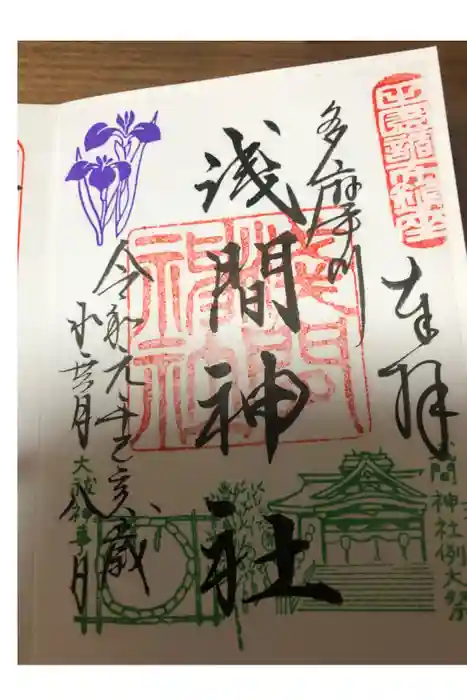 奉拝
多摩川
浅間神社
浅間神社
令和元年己亥歳
水無月八日
浅間神社例大祭
大祓神事